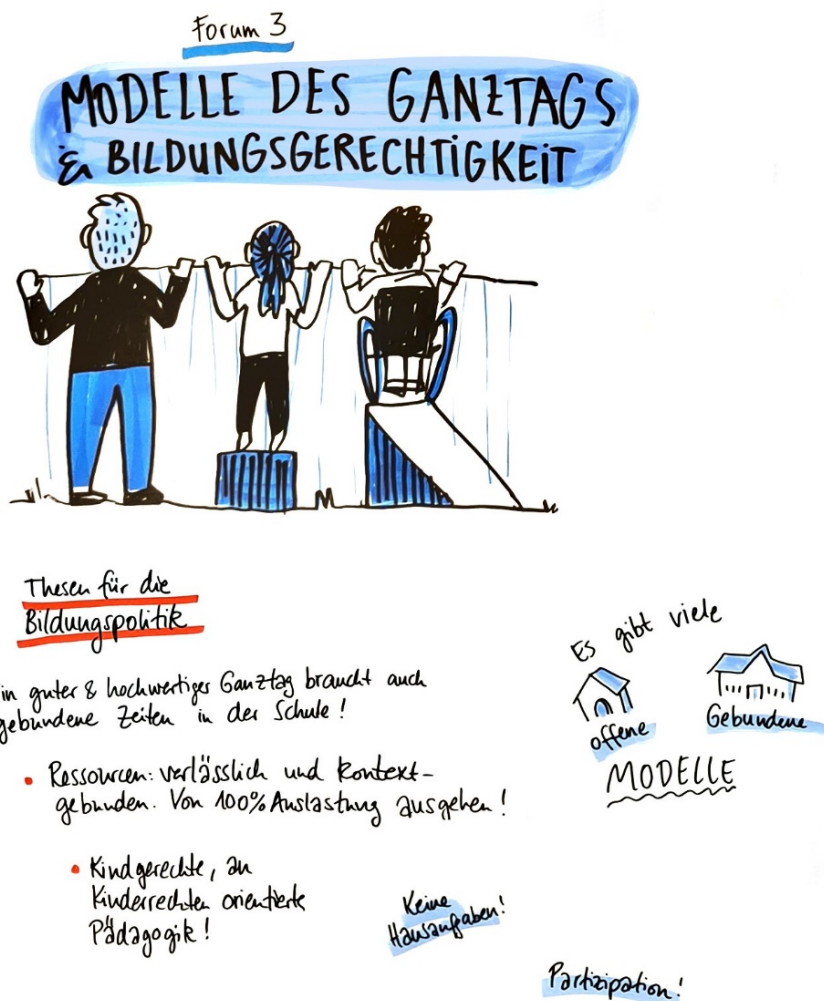 Forum 3
MODELLE DES GANZTAGS
& BILDUNGSGERECHTIGKEIT
Thesen für die
Bildungspolitik
in guter & hochwertiger Ganztag braucht auch
gebundene Zeiten in der Schule!
• Ressourcen: verlässlich und kontext-
gebunden. Von 100% Auslastung ausgehen!
• Kindgerechte, an
Kinderrechten orientierte
Pädagogik!
Es gibt viele
offene
Gebundene
MODELLE
Keine
Hausaufgaben!
Partizipation!